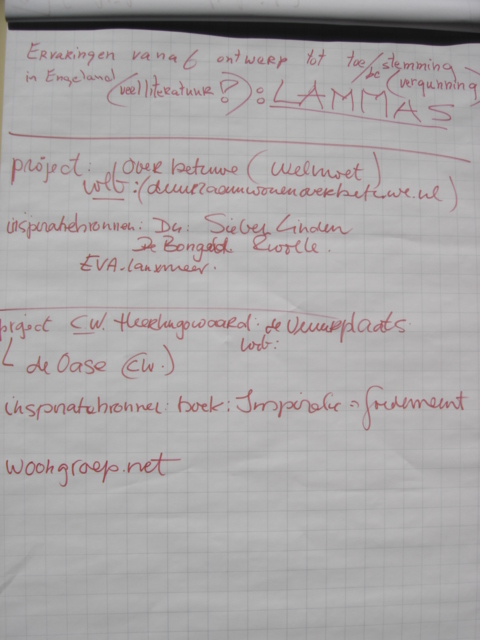 Ervaringen vanaf ontwerp tot toe/be stemming
in Engeland (veel literatuur?): (vergunning)
LAMMAS
project: Over betuwe (Welmoet)
web: (duurzaamwonenoverbetuwe.nl)
inspiratiebronnen: Du: Sieben Linden
De Bongerd Zwolle.
EVA-lanxmeer.
project CW. Heerhugowaard: de Vuurplaats.
web:
de Oase (CW.)
inspiratiebronnen: boek: Inspiratie =
woongroep.net